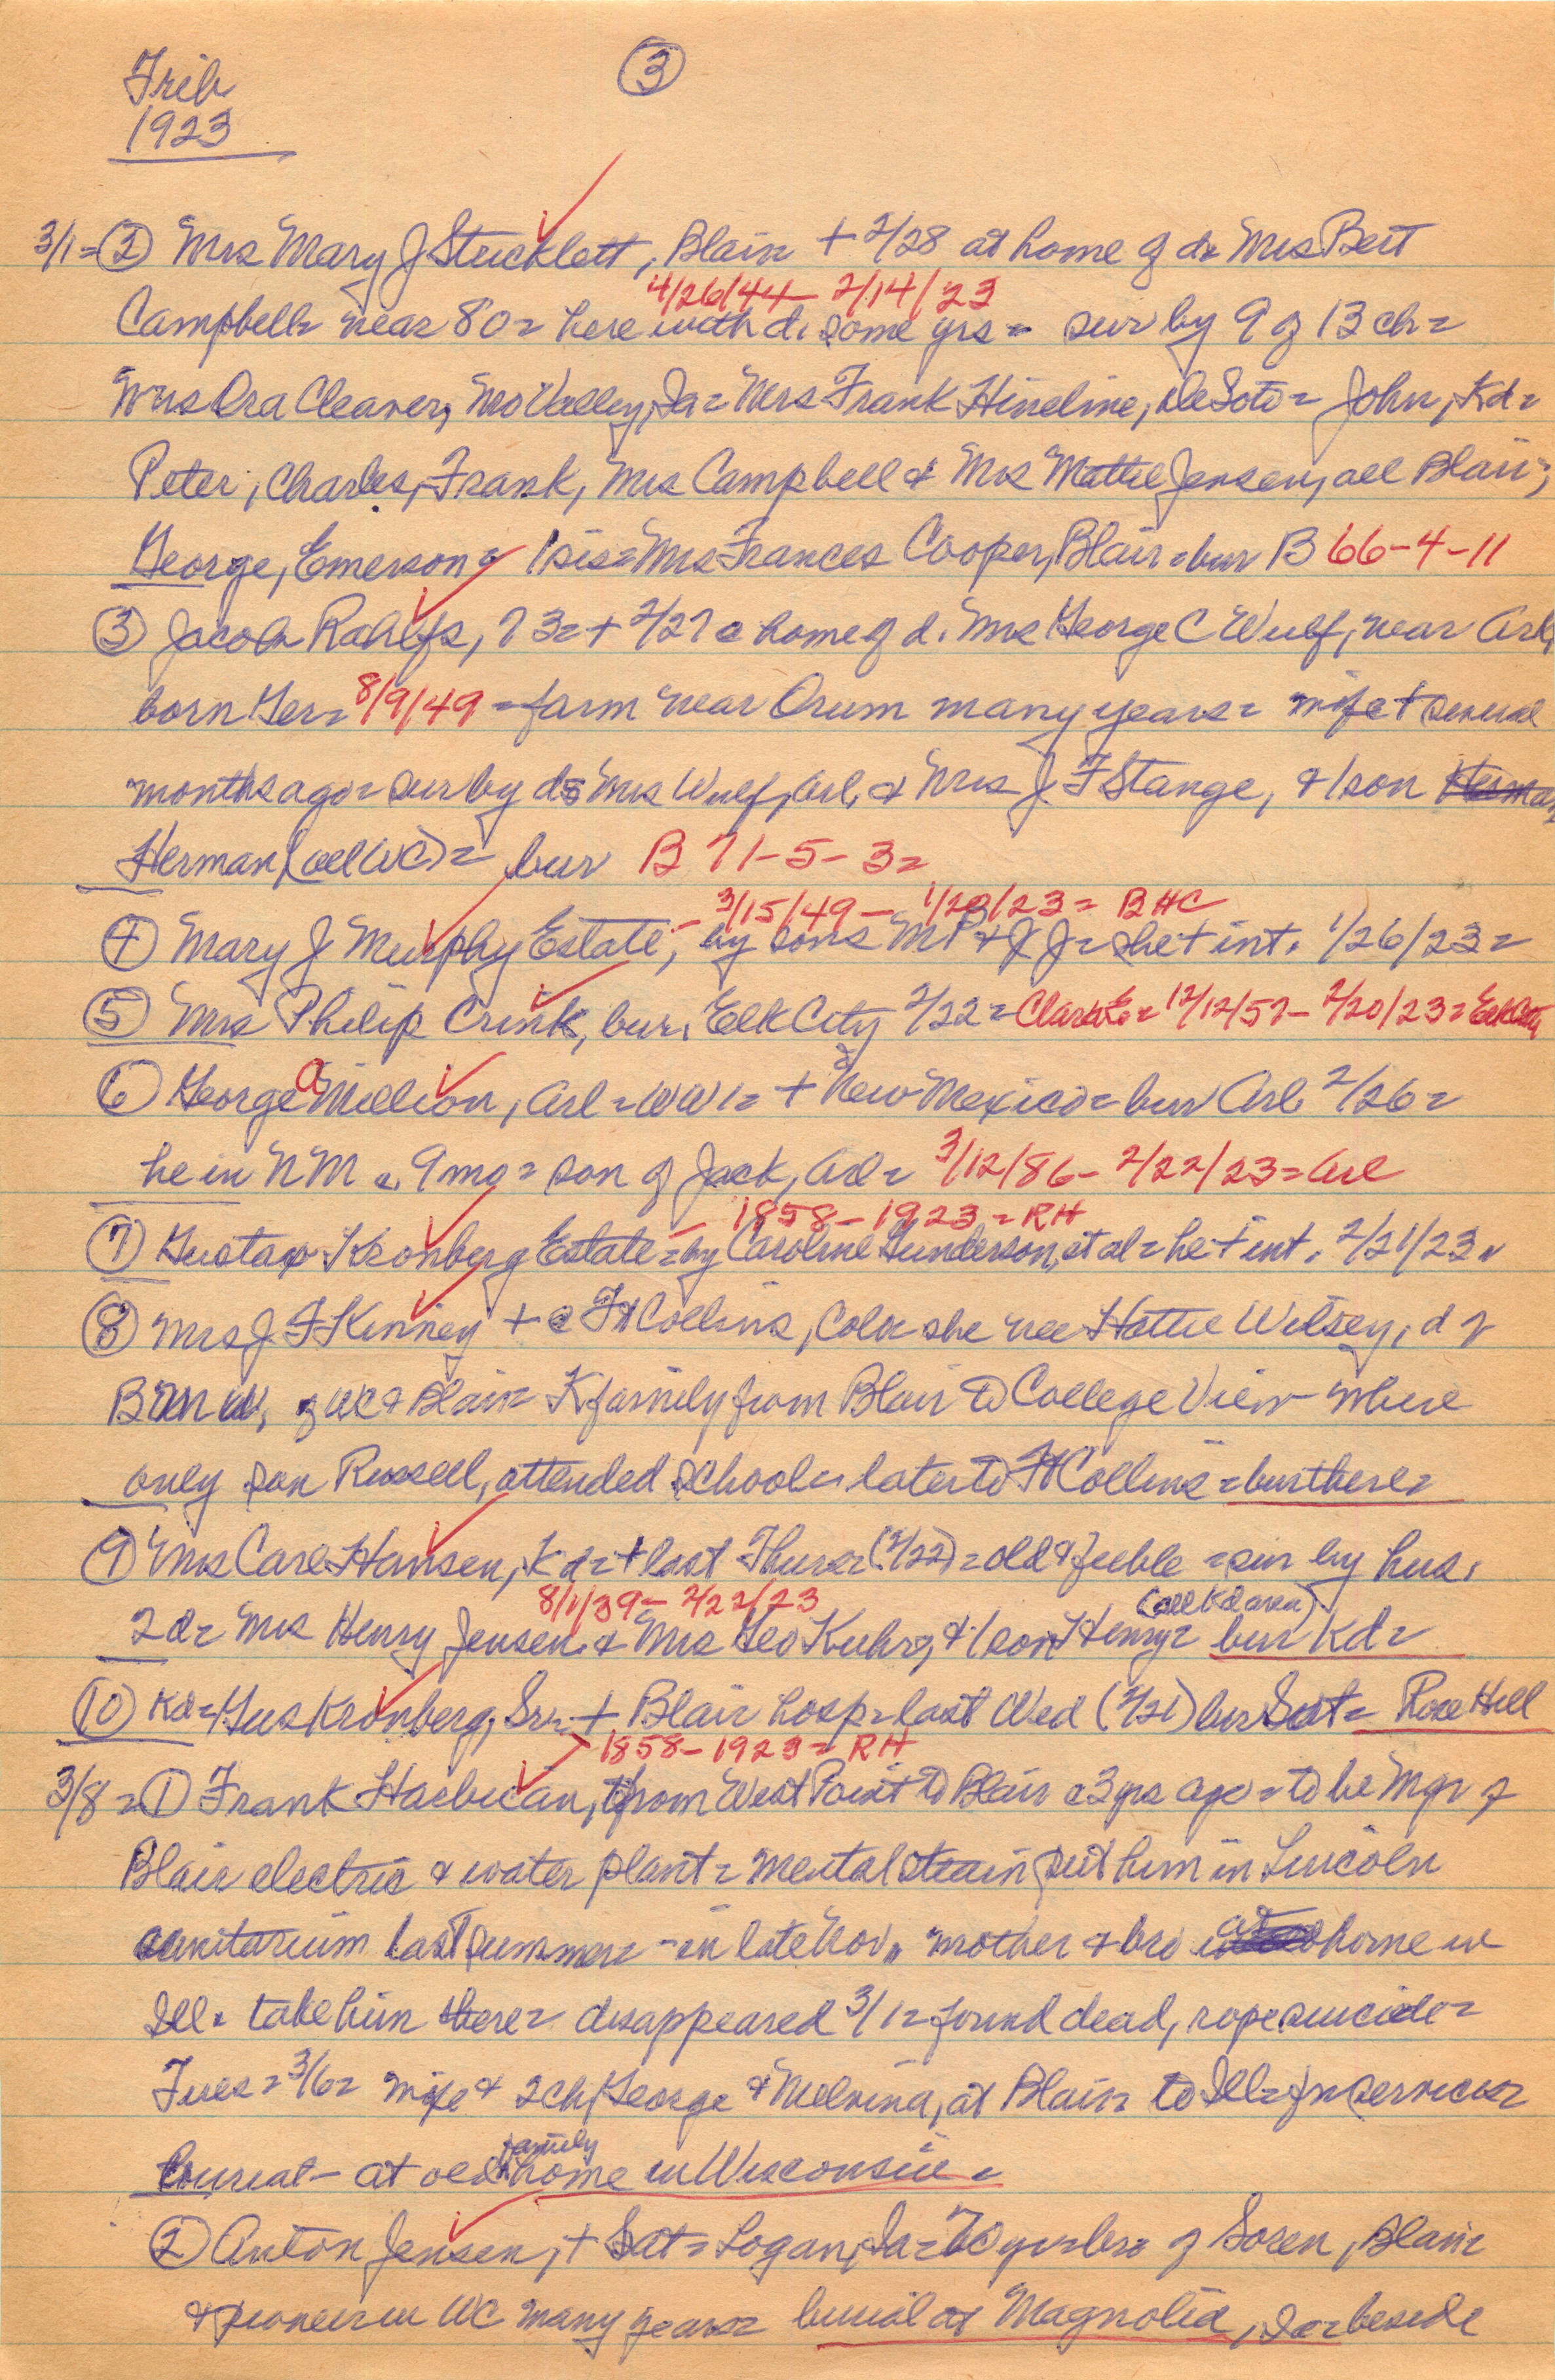 Trib
③
1923
3/1= ② Mrs Mary J Stucklett, Blair + 2/28 at home of d= Mrs Bert
4/26/44 - 2/14/23
Campbell= near 80= here with d. some yrs= sur by 9 of 13 ch=
Mrs Ora Cleaver, MoValley, Ia= Mrs Frank Hineline, DeSoto= John, Kd=
Peter, Charles, Frank, Mrs Campbell & Mrs Mattie Jensen, all Blair;
George, Emerson= 1 sis= Mrs Frances Cooper, Blair= bur B 66-4-11
③ Jacob Rahlfs, 73= + 2/27 @ home of d. Mrs George C Wulf, near Arl,
born Ger= 8/9/49 = farm near Orum many years= wife + several
months ago= sur by ds Mrs Wulf, Arl, & Mrs J F Stange, & 1 son Herman
Herman (all WC)= bur B 71-5-3=
- 3/15/49 - 1/20/23= BHC
④ Mary J Murphy Estate, by sons MP & J J= she + int. 1/26/23=
⑤ Mrs Philip Crink, bur. Elk City 2/22= Clara E= 12/12/57- 2/20/23= Elk City
⑥ George A Million, Arl= WW1= + New Mexico= bur Arl 2/26=
he in NM c. 9 mo= son of Jack, Arl= 3/12/86- 2/22/23= Arl
- 1858-1923 = RH
⑦ Gustav Kronberg Estate= by Caroline Gunderson, et al= he + int. 2/21/23=
⑧ Mrs J F Kinney + @ Ft Collins, Colo= she nee Hattie Wilsey, d of
W, of WC & Blair= K family from Blair to College View where
only son Russell, attended school= later to Ft Collins= bur there=
⑨ Mrs Carl Hansen, Kd= + last Thurs= (2/22)= old & feeble= sur by hus,
8/1/39- 2/22/23
(all Kd area)
2 d= Mrs Henry Jensen & Mrs Geo Kuhr, & 1 son Henry= bur Kd=
⑩ Kd= Gus Kronberg, Sr= + Blair hosp= last Wed (2/21) bur Sat= Rose Hill
1858-1923= RH
3/8= ① Frank from West Point to Blair c 3 yrs ago= to be Mgr of
Blair electric & water plant= mental strain put him in Lincoln
sanitarium last summer= in late Nov, mother & bro at home in
Ill. take him there= disappeared 3/1= found dead, rope suicide=
Tues= 3/6= wife & 2 ch, George & Melvina, at Blair= to Ill= fn services
burial- at old family home in Wisconsin=
② Anton Jensen, + Sat= Logan, Ia= 70 yr= bro of Soren, Blair=
& pioneer in WC many years= burial at Magnolia, Ia= beside